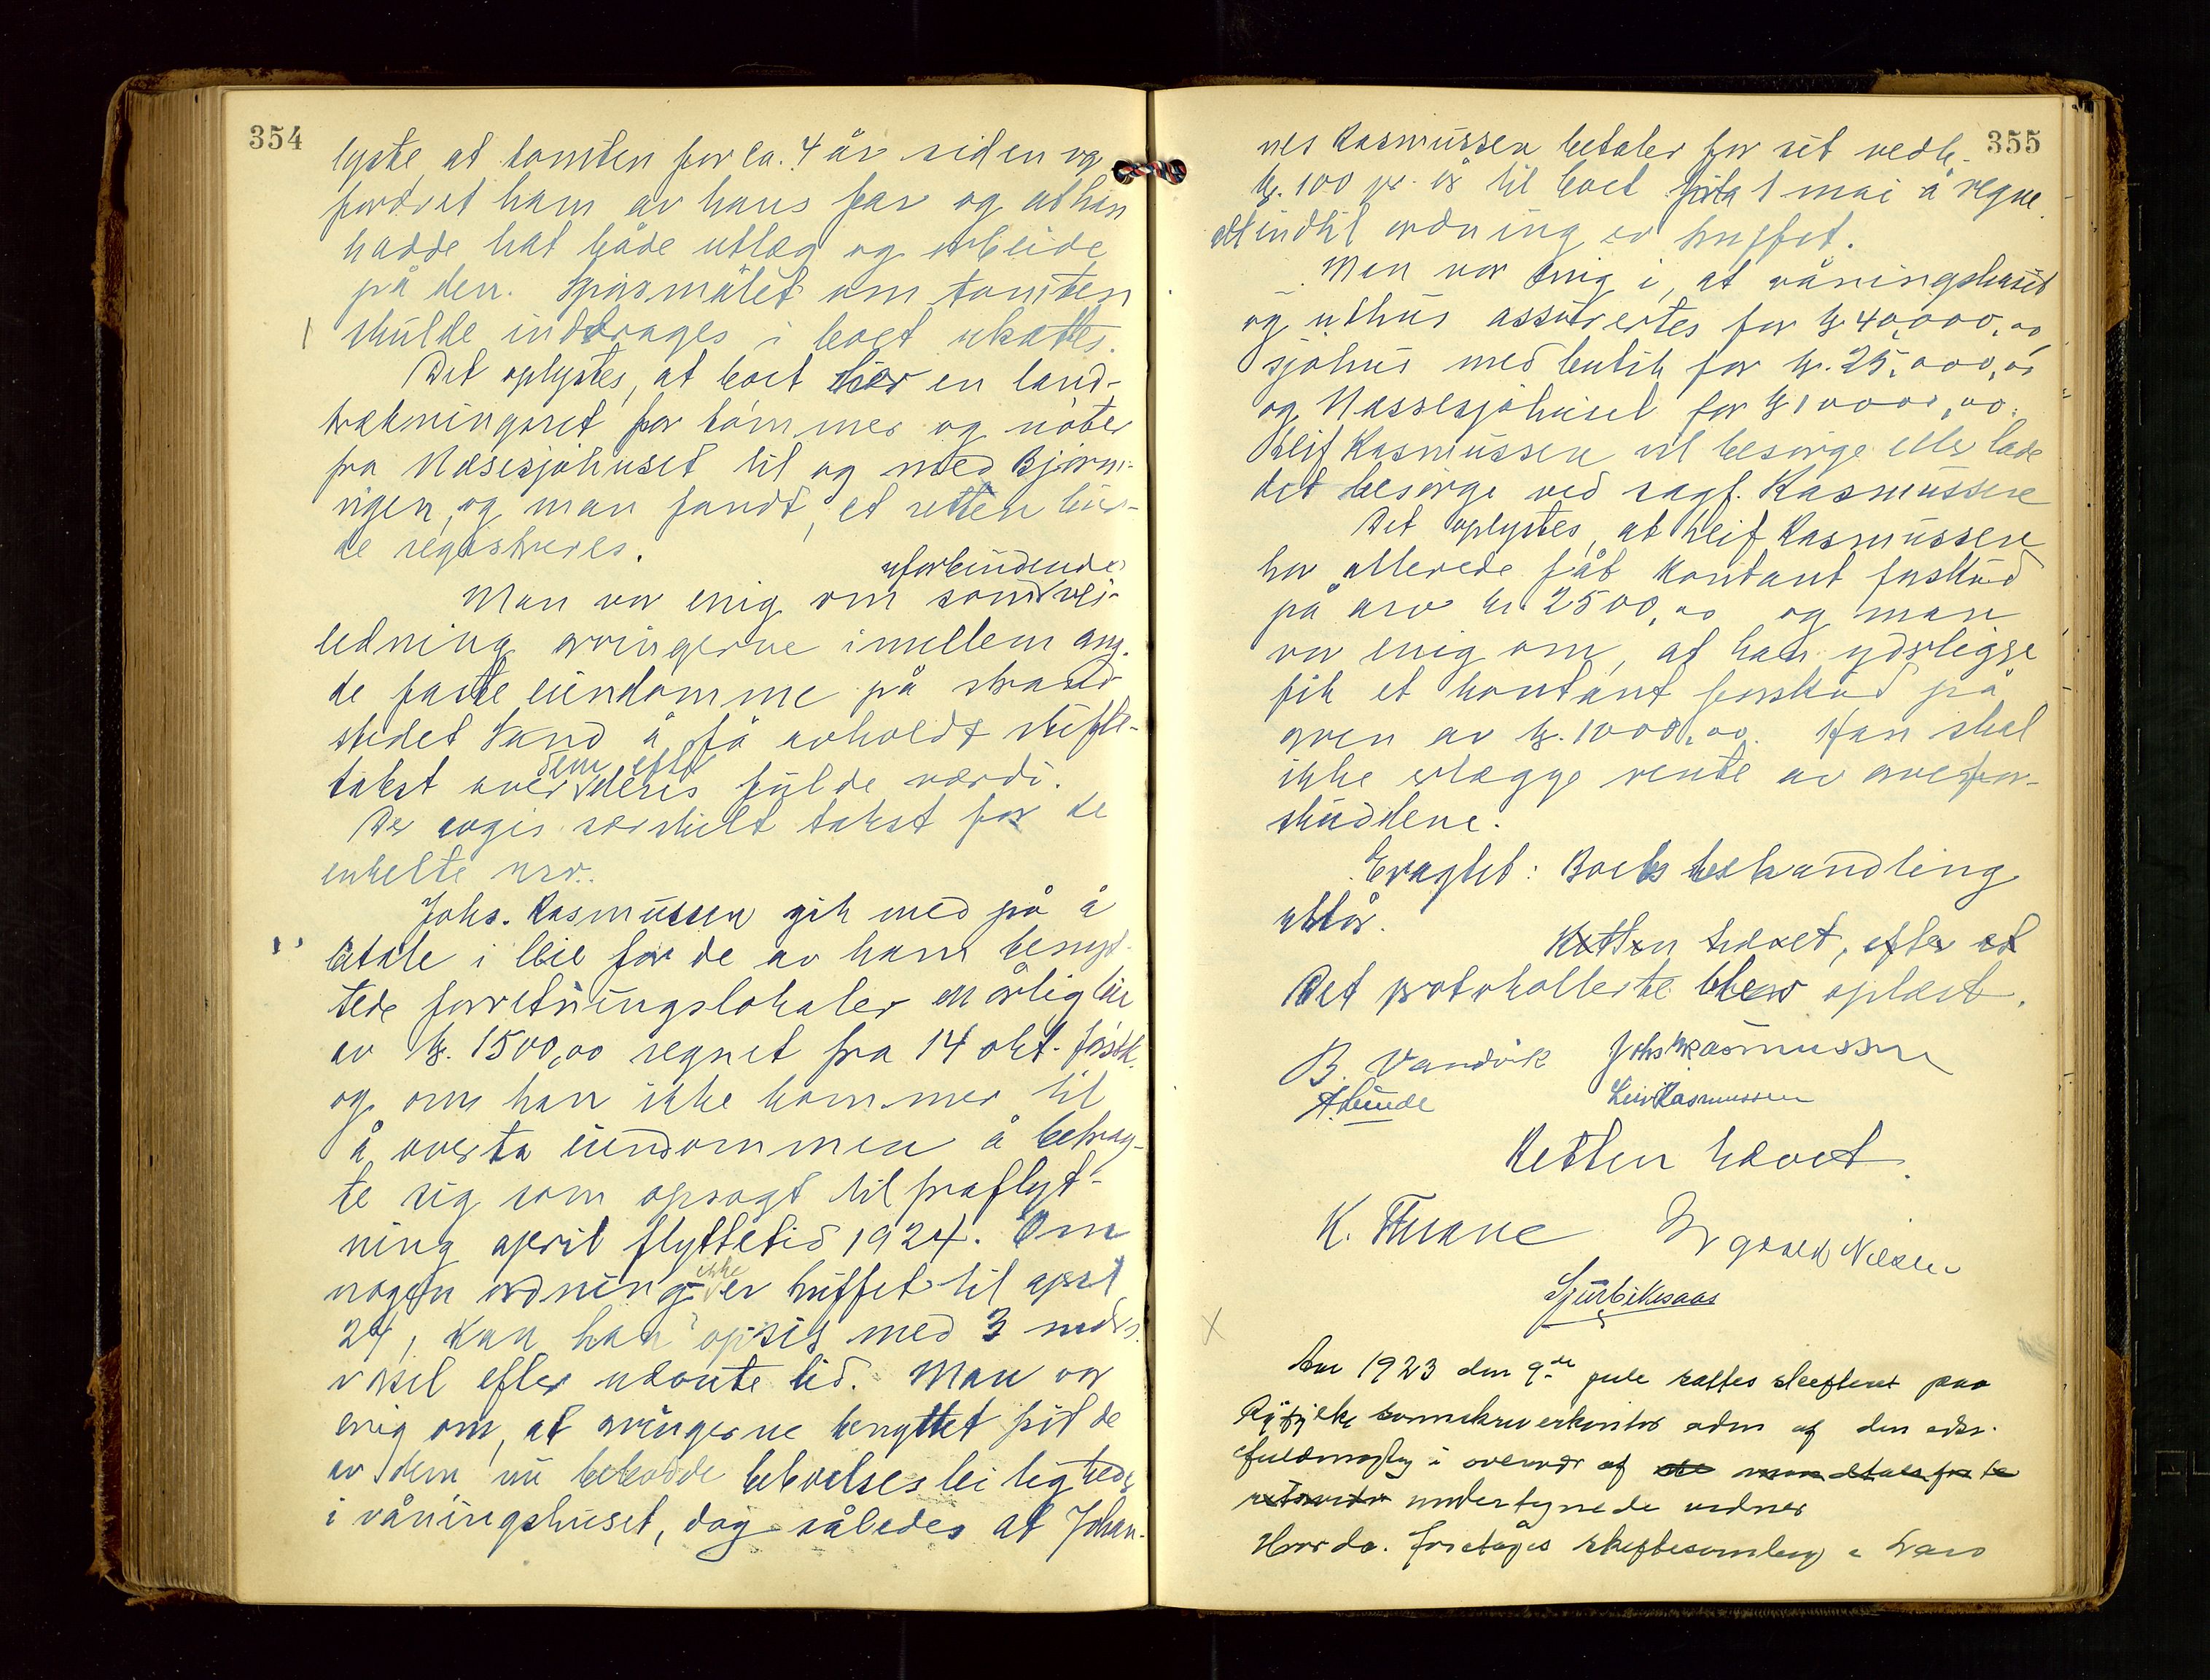 354
lyste, at tomten for ca. 4 år siden var
fordret ham av hans far og at han
hadde hat både utlæg og arbeide
på den. Spørsmålet om tomten
skulde inddrages i boet utsattes.
Det oplystes, at boet har en land-
trækningsret for tømmer og nøter
fra Næsesjøhuset til og med Bjørn-
vigen, og man fandt, at retten bur-
de registreres.
uforbindende
Man var enig om som vei-
ledning arvingerne imellem ang.
de faste eiendomme på strand-
stedet Sand å få avholdt skifte-
dem efter
takst over deres fulde værdi.
Der avgis særskilt takst for de
enkelte nrr.
Johs. Rasmussen gik med på å
betale i leie for de av ham benyt-
tede forretningslokaler en årlig leie
av kr. 1500,00 regnet fra 14 okt. førstk.
og om han ikke kommer til
å overta eiendommen å betrag-
te sig som opsagt til fraflyt-
ning april flyttetid 1924. Om
ikke
nogen ordning er truffet til april
24, kan han opsis med 3 mdrs.
varsel efter nævnte tid. Man var
enig om, at arvingerne benyttet frit de
av dem nu bebodde beboelsesleiligheder
i våningshuset, dog således at Johan-
355
nes Rasmussen betaler for sit vedk.
kr. 100 pr. år til boet fra 1 mai å regne
alt indtil ordning er truffet.
Man var enig i, at våningshuset
og uthus assurertes for kr 40,000,00
sjøhus med butik for kr. 25,000,00
og Næssesjøhuset for kr 10000,00.
Leif Rasmussen vil besørge eller lade
det besørge ved sagf. Rasmussen
Det oplystes, at Leif Rasmussen
har allerede fåt kontant forskud
på arv kr. 2500,00 og man
var enig om, at han yderligere
fik et kontant forskud på
arven av kr. 1000,00. Han skal
ikke erlægge rente av arvefor-
skuddene.
Eragtet: Boets behandling
utstår.
Retten hævet, efter at
Det protokollerte blev oplæst.
B. Vandvik Johs Rasmussen
A. Lunde Leiv Rasmussen
Retten hævet.
K. Thrane Nilsen
Aar 1923 den 9de juli sattes skifteret paa
Ryfylke sorenskriverkontor adm af den eds.
fuldmægtig i overvær af
undertegnede vidner
Hvorda. foretages skiftesamling i